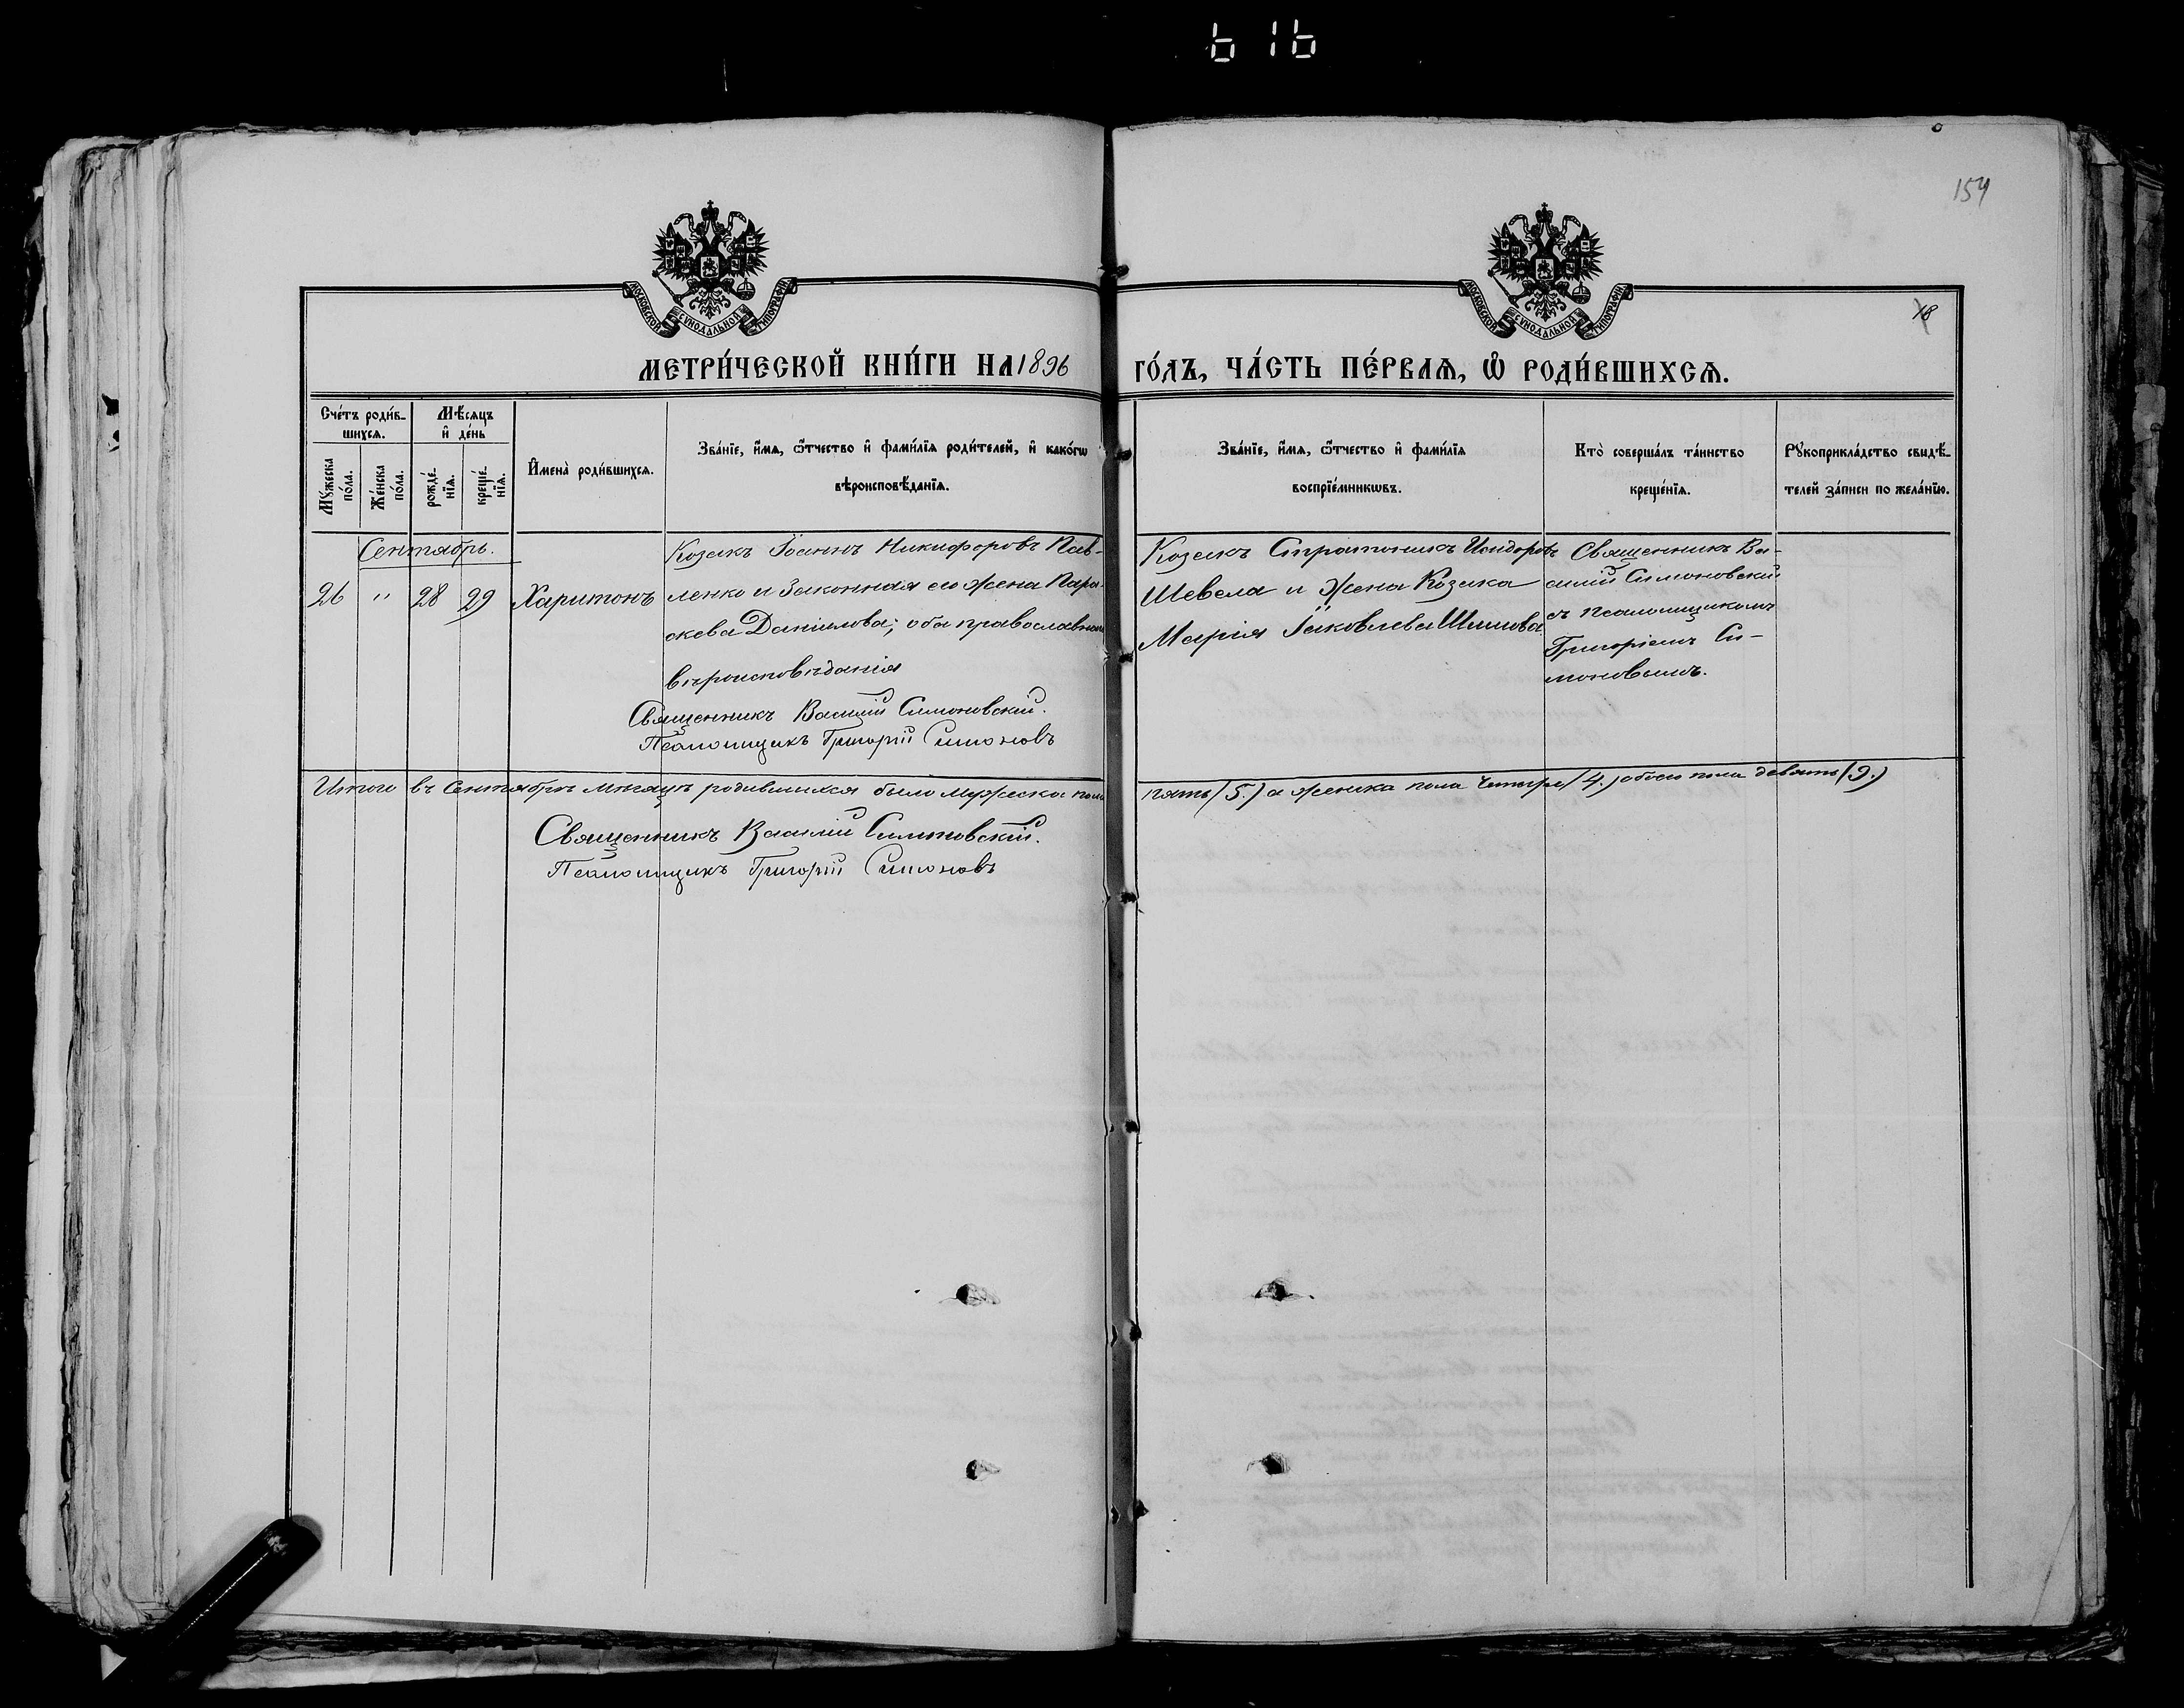 616
154
18
МОСКОВСКОЙ СѴНОДАЛЬНОЙ ТИПОГРАФІИ
МОСКОВСКОЙ СѴНОДАЛЬНОЙ ТИПОГРАФІИ
МЕТРИ́ЧЕСКОЙ КНИ́ГИ НА 1896
ГО́ДЪ, ЧА́СТЬ ПЕ́РВАЯ, Ѡ҆ РОДИ́ВШИХСЯ.
Сче́тъ роди́в-
шихся.
Мѣ́сяцъ
и҆ де́нь
Мꙋ́жеска
по́ла.
Же́нска
по́ла.
рожде́-
нїя.
креще́-
нїя.
И҆мена̀ роди́вшихся.
Зва́нїе, и҆́мя, ѻ҆́тчество и҆ фами́лїя роди́телей, и҆ како́гѡ
вѣроисповѣ́данїя.
Зва́нїе, и҆́мя, ѻ҆́тчество и҆ фами́лїя
воспрїе́мникѡвъ.
Кто̀ соверша́лъ та́инство
креще́нїя.
Рꙋкоприкла́дство свидѣ́-
телей за́писи по жела́нїю.
Сентябрь.
26 " 28 29 Харитонъ
Козакъ Іоаннъ Никифоровъ Пав-
ленко и законная его жена Пара-
скева Даніилова; оба православнаго
вѣроисповѣданія
Священникъ Василій Симоновскій.
Псаломщикъ Григорій Симоновъ
Козакъ Стратоникъ Исидоровъ
Шевела и жена Козака
Марія Іаковлева
Священникъ Ва-
силій Симоновскій
съ псаломщикомъ
Григоріемъ Си-
моновымъ.
Итого въ Сентябрѣ мѣсяцѣ родившихся было мужеска пола
пять (5.) а женска пола четыре (4.) обоего пола девять (9.)
Священникъ Василій Симоновскій.
Псаломщикъ Григорій Симоновъ